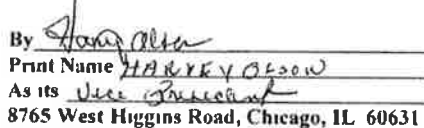 By Harvey Olson
Print Name HARVEY OLSON
As its Vice President
8765 West Higgins Road, Chicago, IL 60631